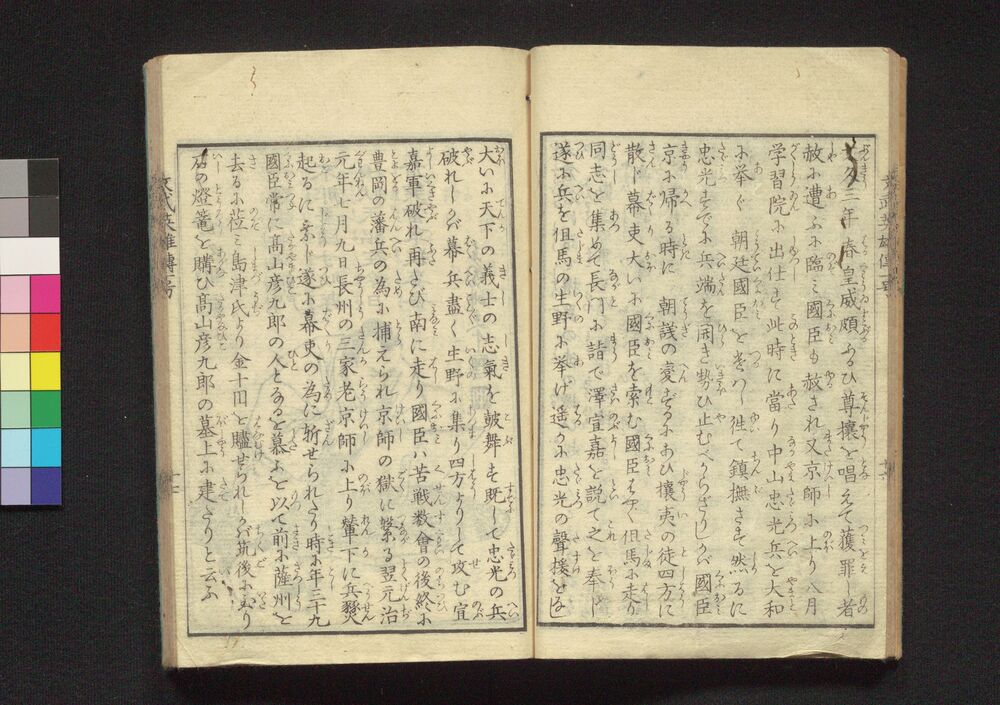 二年春皇威頗ふるひ尊攘を唱えて獲罪し者
赦に遭ふに臨ミ國臣も赦され又京師に上り八月
学習院に出仕す此時に當り中山忠光兵を大和
に挙ぐ 朝廷國臣を遣ハし徃て鎮撫さす然るに
忠光すでに兵端を開き勢ひ止むべからざりしかバ國臣
京に帰る時に 朝議の変ずるにあひ攘夷の徒四方に
散ド幕吏大いに國臣を索む國臣もやく但馬に走り
同志を集めて長門に詣で澤宣嘉を説て之を奉ド
遂に兵を但馬の生野に挙げ遥かに忠光の聲援となし
大いに天下の義士の志氣を皷舞す既して忠光の兵
破れしかバ幕兵盡く生野に集り四方よりして攻む宣
嘉軍破れ再たび南に走り國臣ハ苦戦数會の後終に
豊岡の藩兵の為に捕えられ京師の獄に繋る翌元治
元年七月九日長州の三家老京師に上り輦下に兵燹
起るに乗じ遂に幕吏の為に斬せられたり時に年三十九
國臣常に高山彦九郎の人となるを慕ふを以て前に薩州を
去るに莅ミ島津氏より金十円を贐せられしかバ筑後に到り
石の燈篭を購ひ高山彦九郎の墓上に建たりと云ふ
文武英雄傳